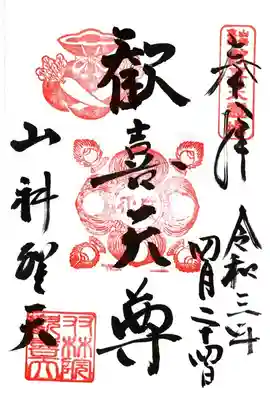 奉拝
令和三年
四月二十四日
歓喜天尊
山科聖天
双林院